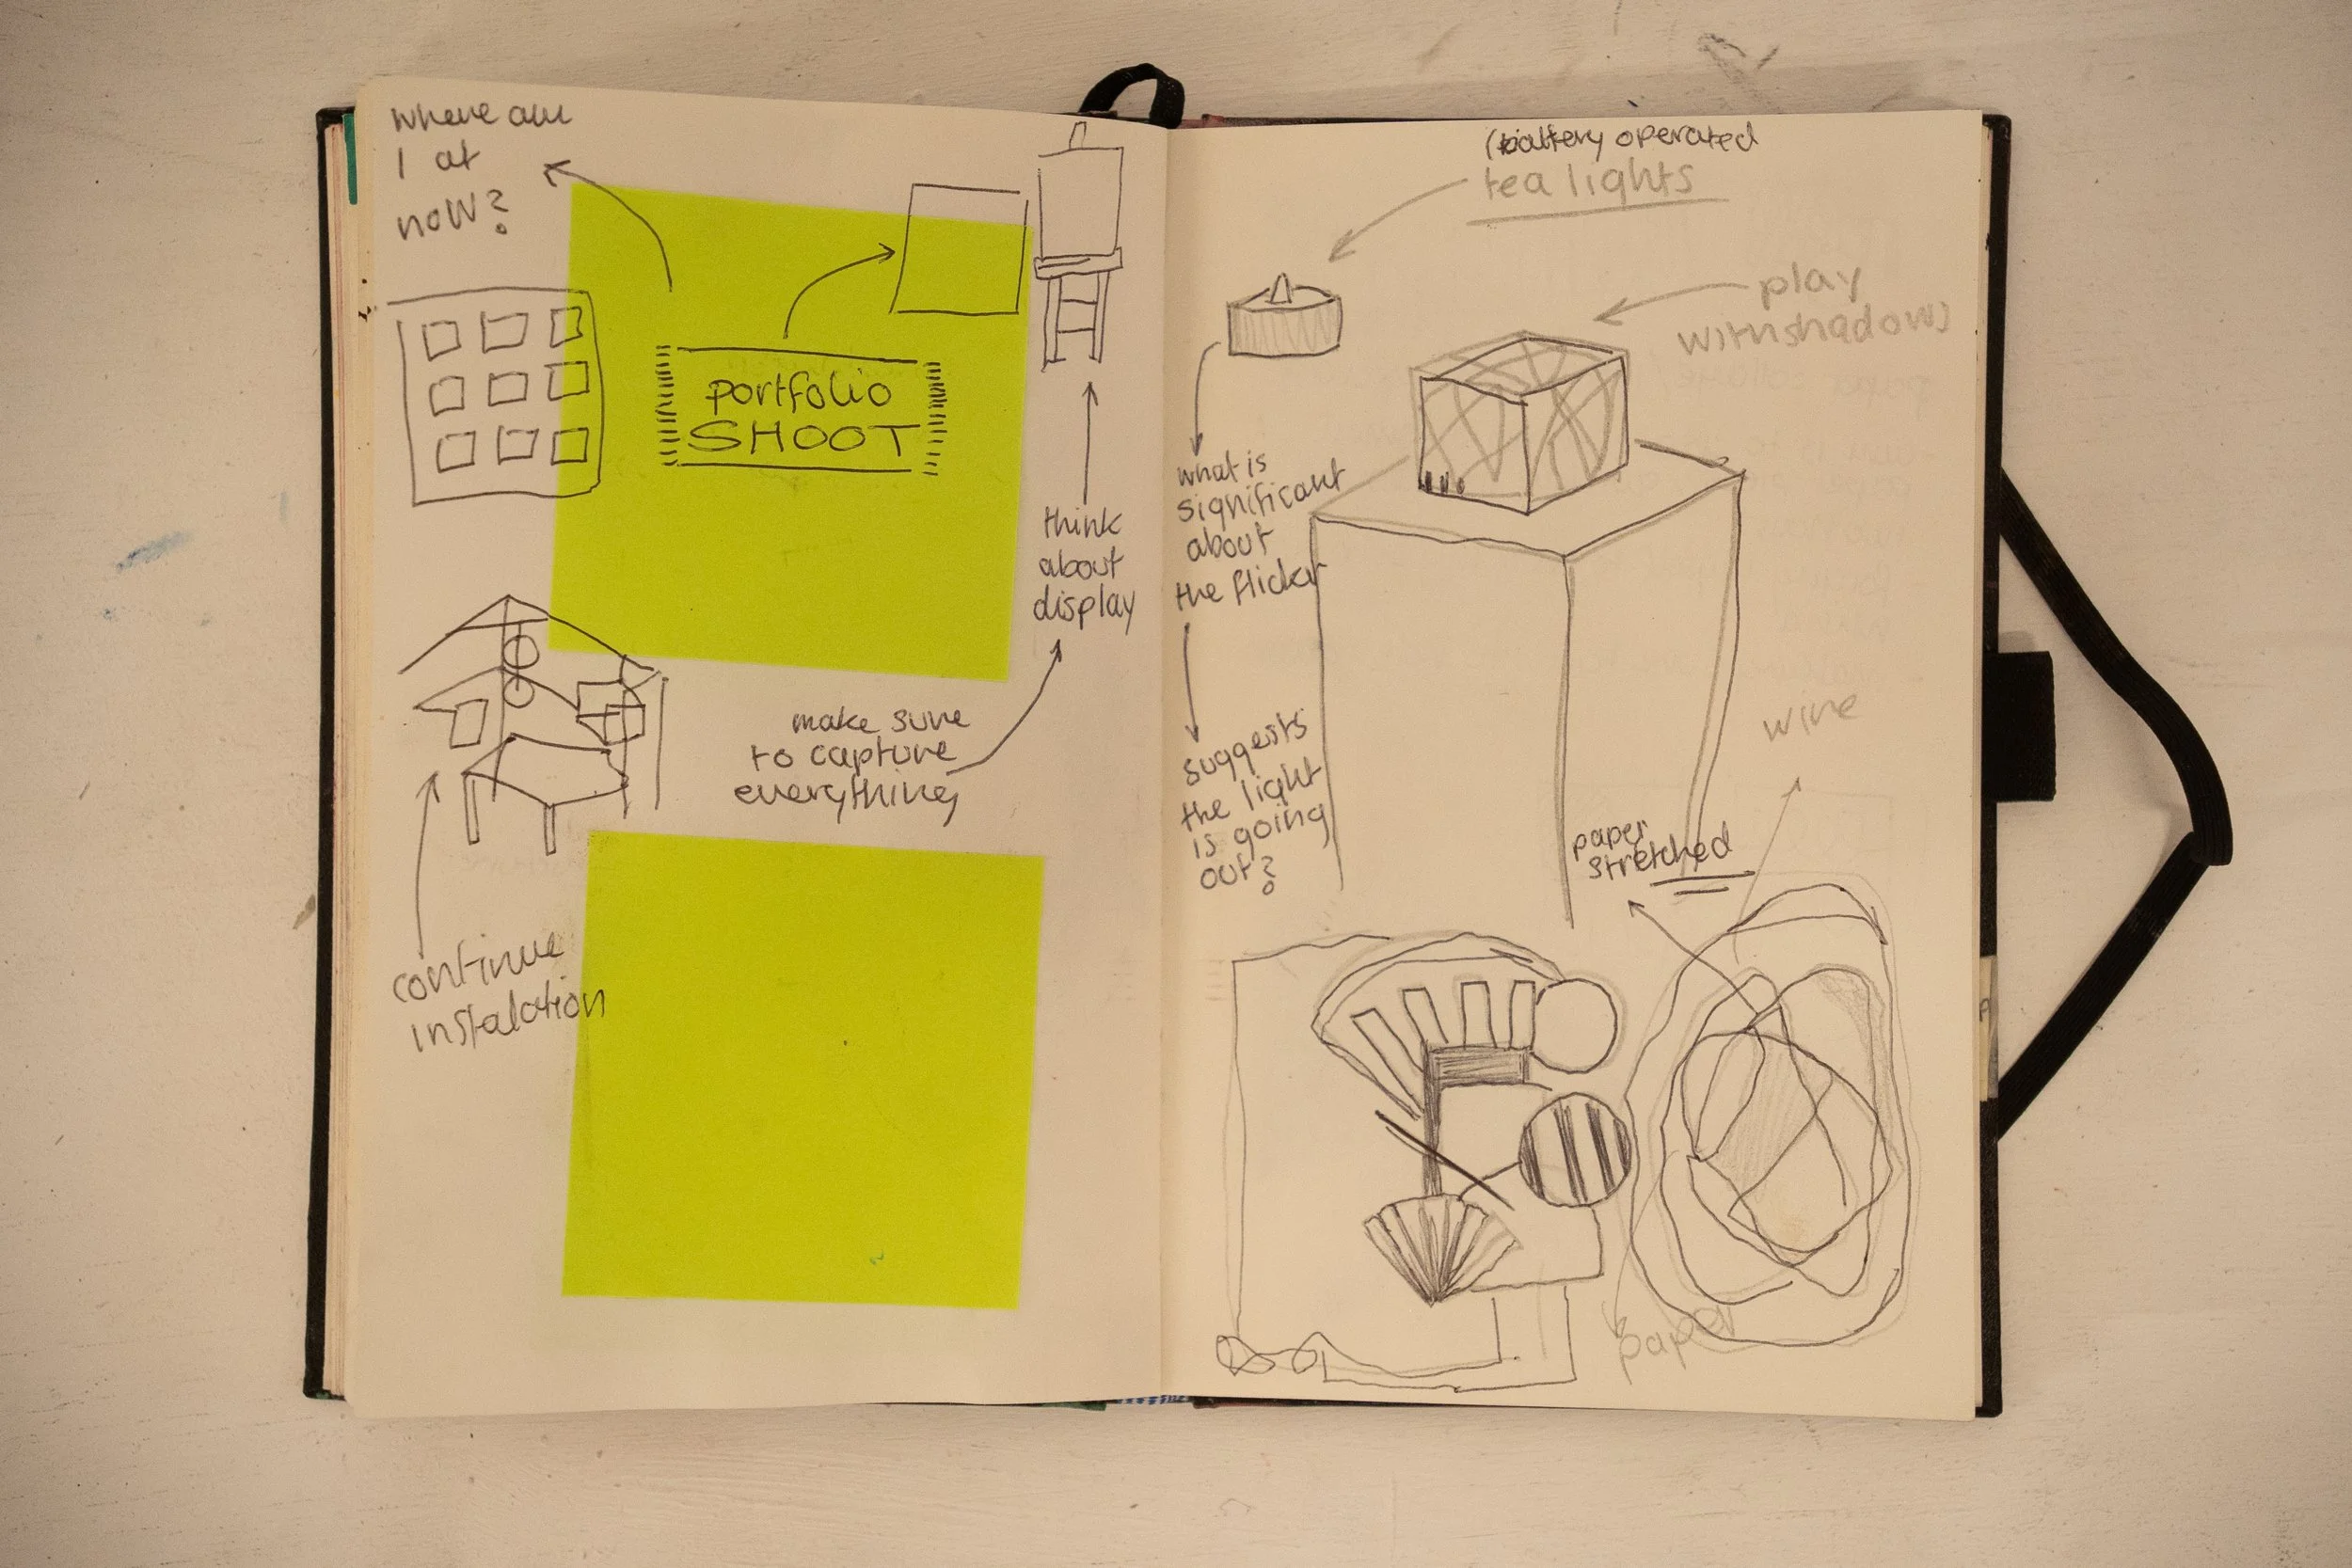 where am
I at
now?
portfolio
SHOOT
think
about
display
make sure
to capture
everything
continue
instalation
(battery operated
tea lights
play
with shadows
what is
significant
about
the flicker
suggests
the light
is going
out?
wire
paper
stretched
paper